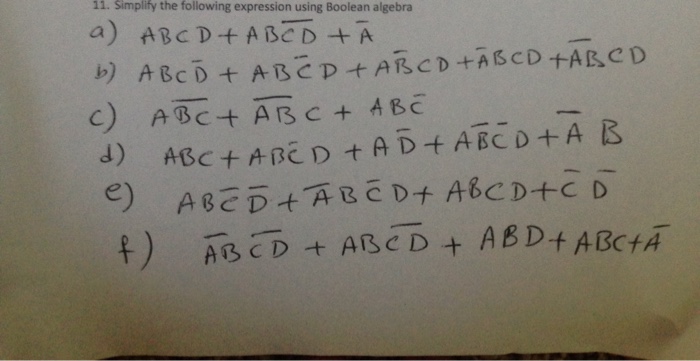 11. Simplify the following expression using Boolean algebra
a) ABCD + AB\overline{CD} + \overline{A}
b) ABC\overline{D} + AB\overline{C}D + A\overline{B}CD + \overline{A}BCD + \overline{AB}CD
c) A\overline{BC} + \overline{AB}C + AB\overline{C}
d) ABC + AB\overline{C}D + A\overline{D} + A\overline{B}\overline{C}D + \overline{A} B
e) AB\overline{C}\overline{D} + \overline{A}B\overline{C}D + ABCD + \overline{C} \overline{D}
f) \overline{AB} \overline{CD} + AB\overline{CD} + ABD + ABC + \overline{A}